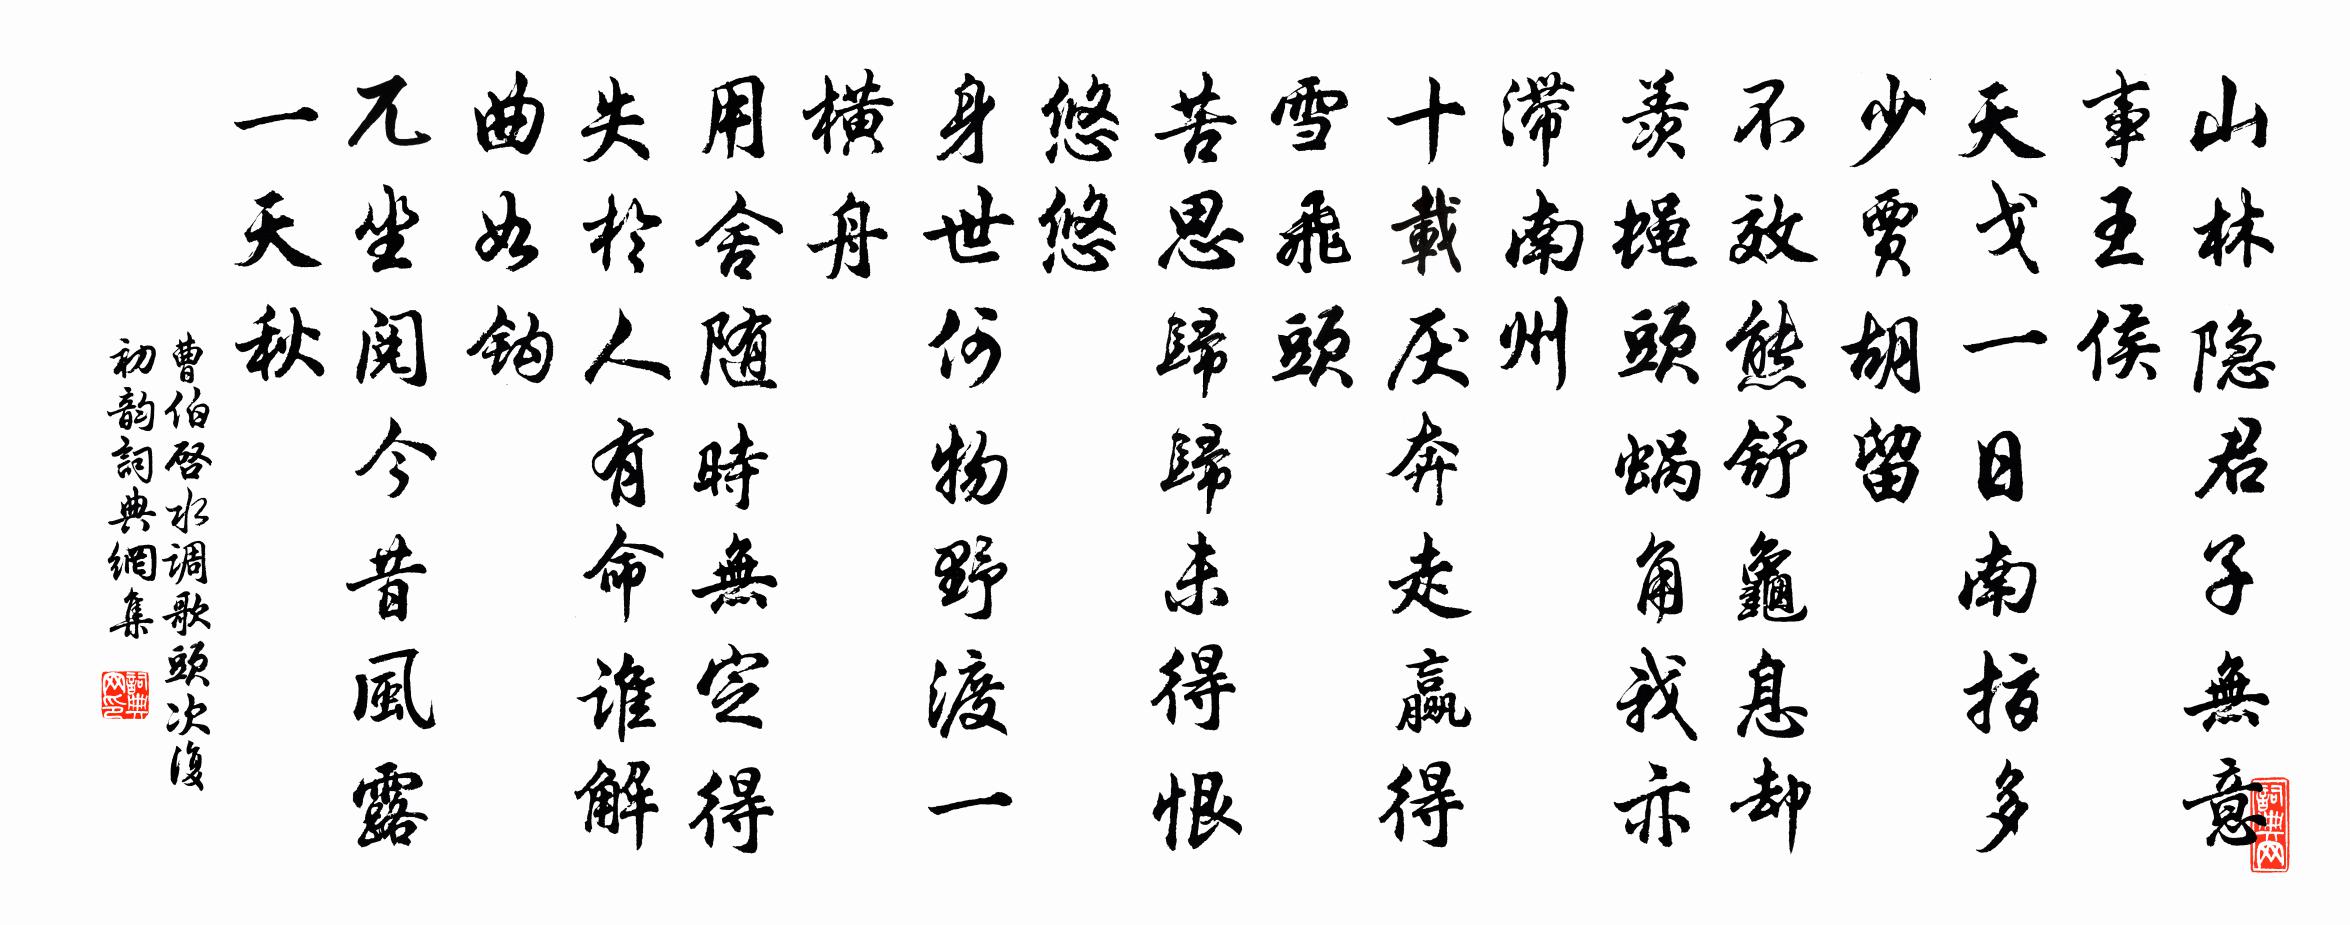 山林隐君子無意
事王侯
天戈一日南指多
少贾胡留
不效熊舒龜息却
羡蝇頭蜗角我亦
滞南州
十載厌奔走赢得
雪飛頭
苦思歸歸未得恨
悠悠
身世何物野渡一
横舟
用舍随時無定得
失於人有命谁解
曲如钩
兀坐阅今昔風露
一天秋
曹伯启水调歌頭次復
初韵詞典網集
詞典网
詞典网印